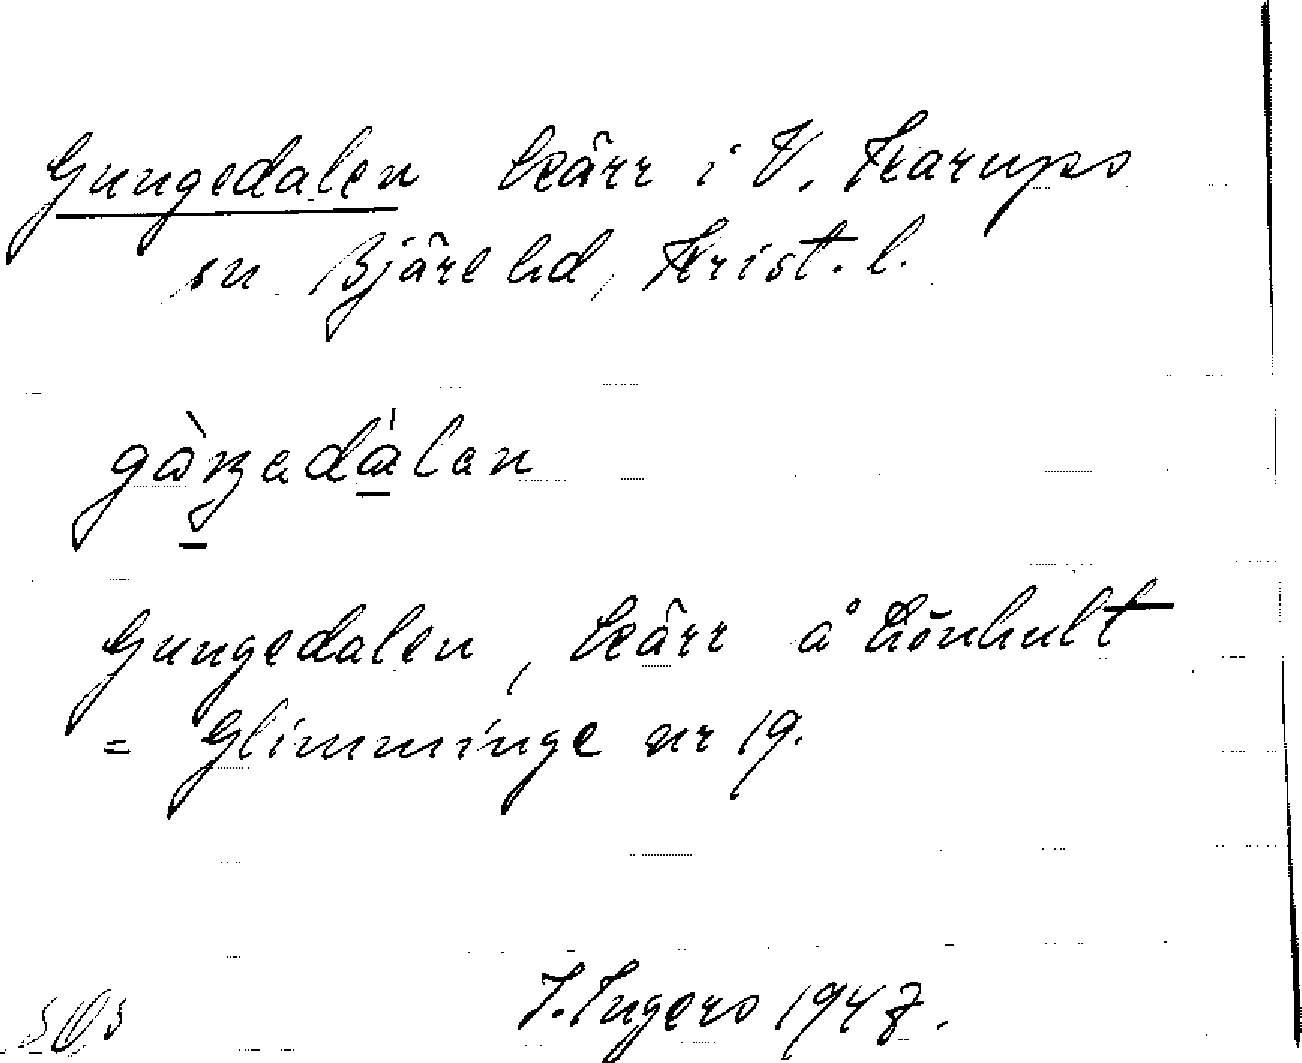 Gungedalen kärr i V. Karups
sn Bjäre hd, Krist. l.
Gungedalen, kärr å Lönhult
= Glimminge nr 19.
I. Ingers 1947.